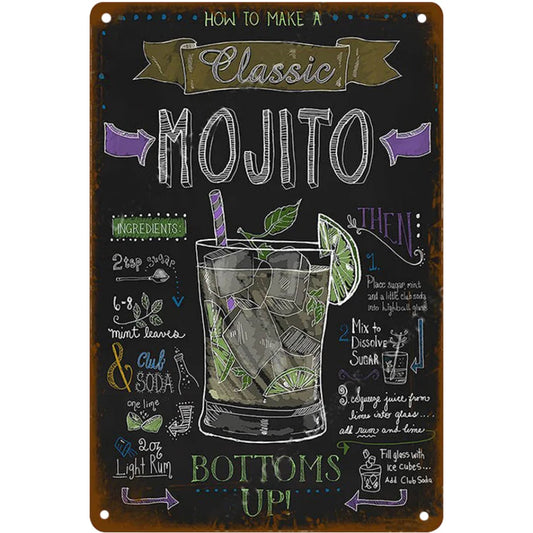 HOW TO MAKE A
Classic
MOJITO
INGREDIENTS:
2 tsp sugar
6-8
mint leaves
& Club
SODA
one lime
2oz
Light Rum
THEN:
1.
Place sugar, mint
and a little club soda
into highball glass
2 Mix to
Dissolve
SUGAR
3. squeeze juice from
limes into glass....
add rum and lime
Fill glass with
ice cubes...
Add Club Soda
BOTTOMS
UP!